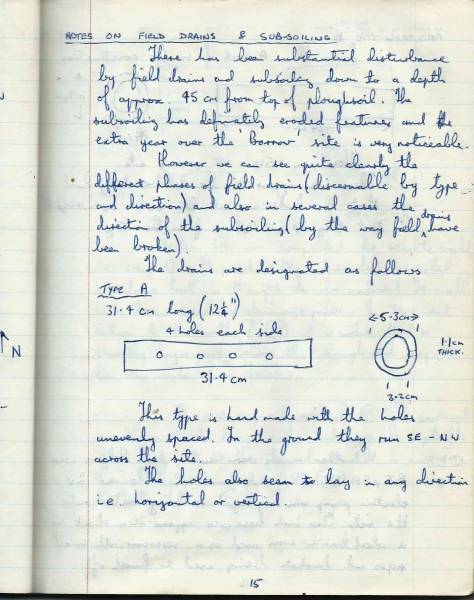 NOTES ON FIELD DRAINS & SUB-SOILING
There has been substantial disturbance
by field drains and subsoiling down to a depth
of approx. 45 cm from top of ploughsoil. The
subsoiling has definately eroded features and the
extra year over the 'Barrow' site is very noticeable.
However we can see quite clearly the
different phases of field drains (discernable by type
and direction) and also in several cases the
direction of the subsoiling (by the way field drains have
been broken).
The drains are designated as follows
TYPE A
31.4 cm long (12¼")
4 holes each side
31.4 cm
5.3cm
1.1cm
THICK.
3.2cm
N
This type is hand made with the holes
unevenly spaced. In the ground they run SE-NW
across the site.
The holes also seem to lay in any direction
i.e. horizontal or vertical.
15